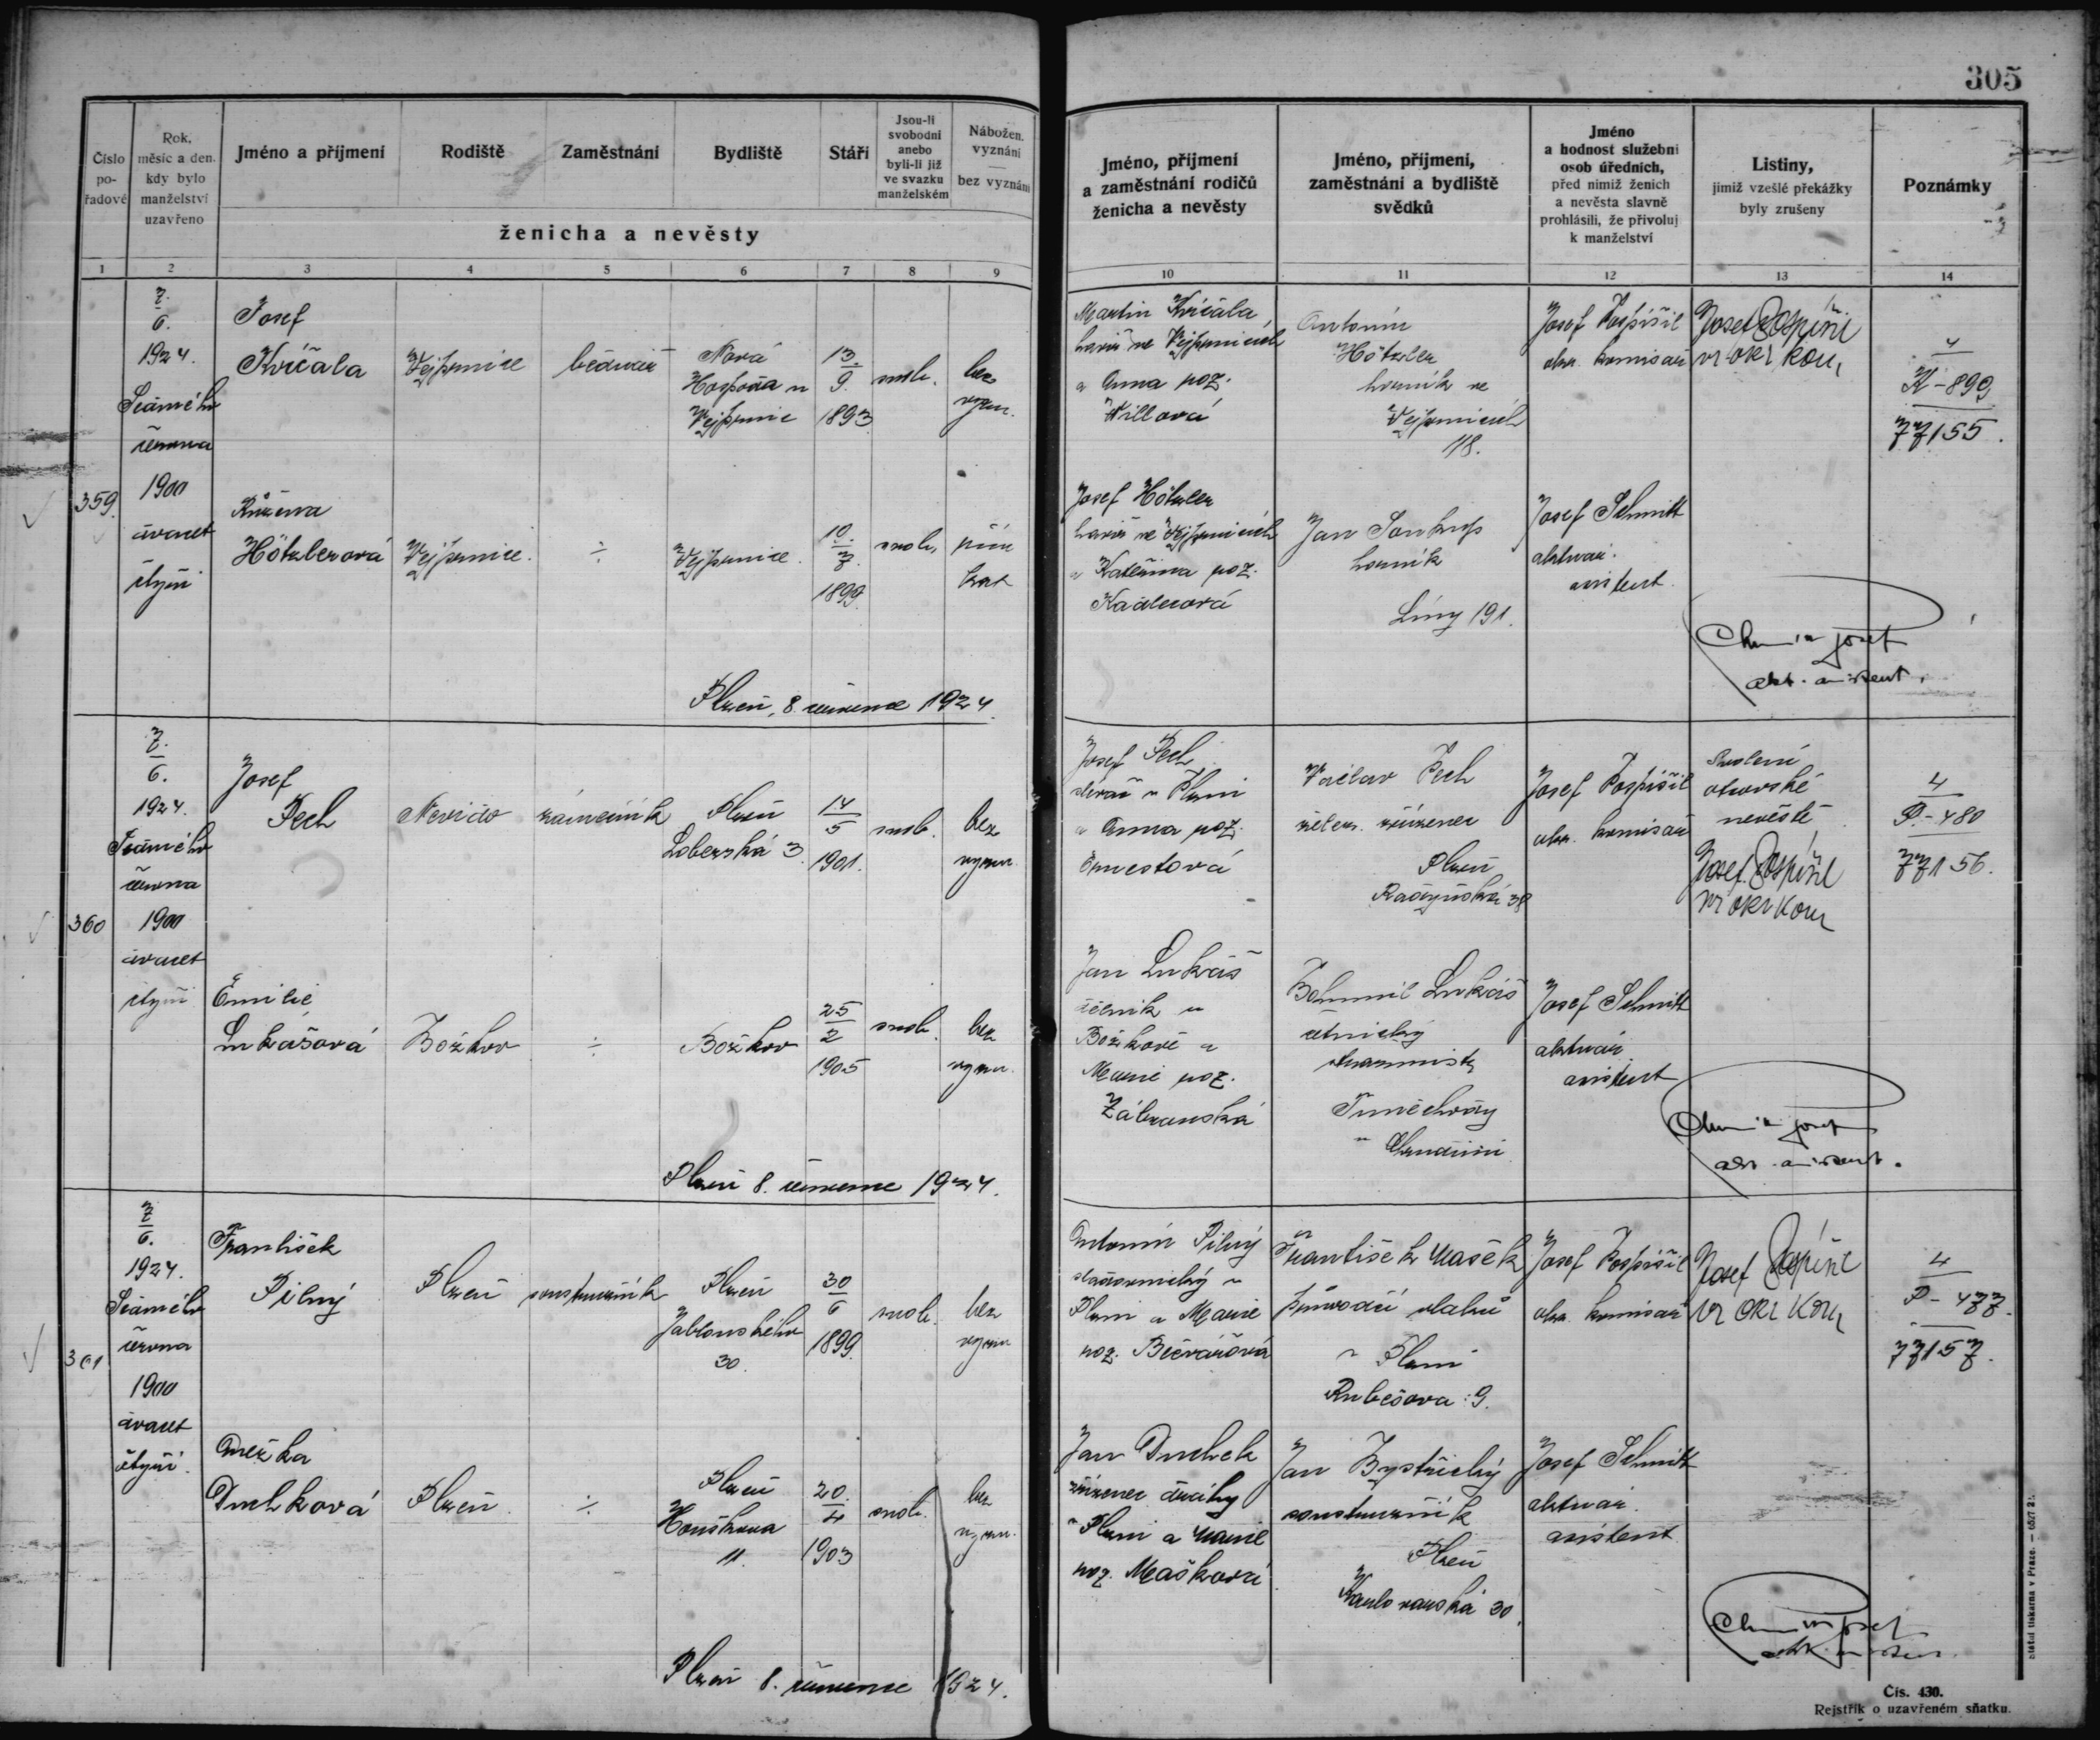 305
Číslo
po-
řadové
Rok,
měsíc a den.
kdy bylo
manželství
uzavřeno
Jméno a příjmení
Rodiště
Zaměstnání
Bydliště
Stáří
Jsou-li
svobodni
anebo
byli-li již
ve svazku
manželském
Nábožen.
vyznání
bez vyznání
ženicha a nevěsty
1 2 3 4 5 6 7 8 9
Jméno, příjmení
a zaměstnání rodičů
ženicha a nevěsty
Jméno, příjmení,
zaměstnání a bydliště
svědků
Jméno
a hodnost služební
osob úředních,
před nimiž ženich
a nevěsta slavně
prohlásili, že přivolují
k manželství
Listiny,
jimiž vzešlé překážky
byly zrušeny
Poznámky
10 11 12 13 14
359.
7.
6.
1924.
Sedmého
června
1900
dvacet
čtyři
Josef
Kvíčala
Vejprnice
bednář
Nová
Hospoda u
Vejprnic
13
9.
1893
svob.
bez
vyzn.
Růžena
Hötzlerová
Vejprnice.
÷
Vejprnice.
10.
7.
1899
svob.
řím
kat
Plzeň, 8. července 1924.
Martin Kvíčala,
havíř ve Vejprnicích
a Anna roz.
Willová
Antonín
Hötzler
horník ve
Vejprnicích
118.
Josef Pospíšil
okr. komisař
Josef Pospíšil
vr okr kom
4
K-899
77155.
Josef Hötzler
havíř ve Vejprnicích
a Kateřina roz.
Kadlecová
Jan Soukup
horník
Líny 191.
Josef Schmitt
aktuár.
asistent.
Josef
akt. asistent.
360
7.
6.
1924.
Sedmého
června
1900
dvacet
čtyři
Josef
Pech
Nevřeň
zámečník
Plzeň
Lobezská 3
14
5
1901.
svob.
bez
vyzn.
Emilie
Lukášová
Božkov
÷
Božkov
25
2
1905
svob.
bez
vyzn.
Plzeň 8. července 1924.
Josef Pech
v Plzni
a Anna roz.
Ernestová
Václav Pech
želez. zřízenec
Plzeň
Radyňská 38
Josef Pospíšil
okr. komisař
Svolení
otcovské
nevěstě
Josef Pospíšil
vr okr kom
4
P.-480
77156.
Jan Lukáš
dělník v
Božkově a
Marie roz.
Zábranská
Bohumil Lukáš
četnický
strážmistr
Tuněchody
u Chrudimi
Josef Schmitt
aktuár.
asistent
Josef
akt. asistent.
361
7
6.
1924.
Sedmého
června
1900
dvacet
čtyři.
František
Pilný
Plzeň
soustružník
Plzeň
Jablonského
30.
30
6
1899.
svob.
bez
vyzn
Anežka
Duchková
Plzeň.
÷
Plzeň
Houškova
11.
20.
4
1903
svob.
bez
vyzn.
Plzeň 8. července 1924.
Antonín Pilný
v
Plzni a Marie
roz. Bečvářová
František Mašek
průvodčí vlaků
v Plzni
Rubešova 9.
Josef Pospíšil
okr. komisař
Josef Pospíšil
vr okr kom
4
P-477.
77157.
Jan Duchek
zřízenec dráhy
v Plzni a Marie
roz. Mašková
Jan Bystřický
soustružník
Plzeň
Karlovarská 30.
Josef Schmitt
aktuár.
asistent
Josef
Státní tiskárna v Praze.
Čís. 430.
Rejstřík o uzavřeném sňatku.